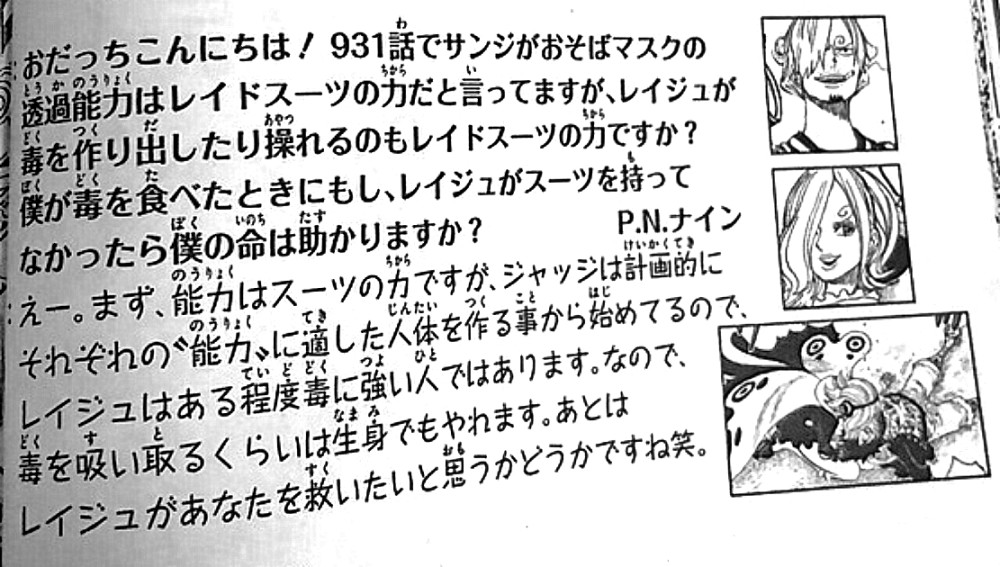 おだっちこんにちは! 931話でサンジがおそばマスクの
透過能力はレイドスーツの力だと言ってますが、レイジュが
毒を作り出したり操れるのもレイドスーツの力ですか?
僕が毒を食べたときにもし、レイジュがスーツを持って
なかったら僕の命は助かりますか? P.N.ナイン
えー。まず、能力はスーツの力ですが、ジャッジは計画的に
それぞれの〝能力〟に適した人体を作る事から始めてるので、
レイジュはある程度毒に強い人ではあります。なので、
毒を吸い取るくらいは生身でもやれます。あとは
レイジュがあなたを救いたいと思うかどうかですね笑。